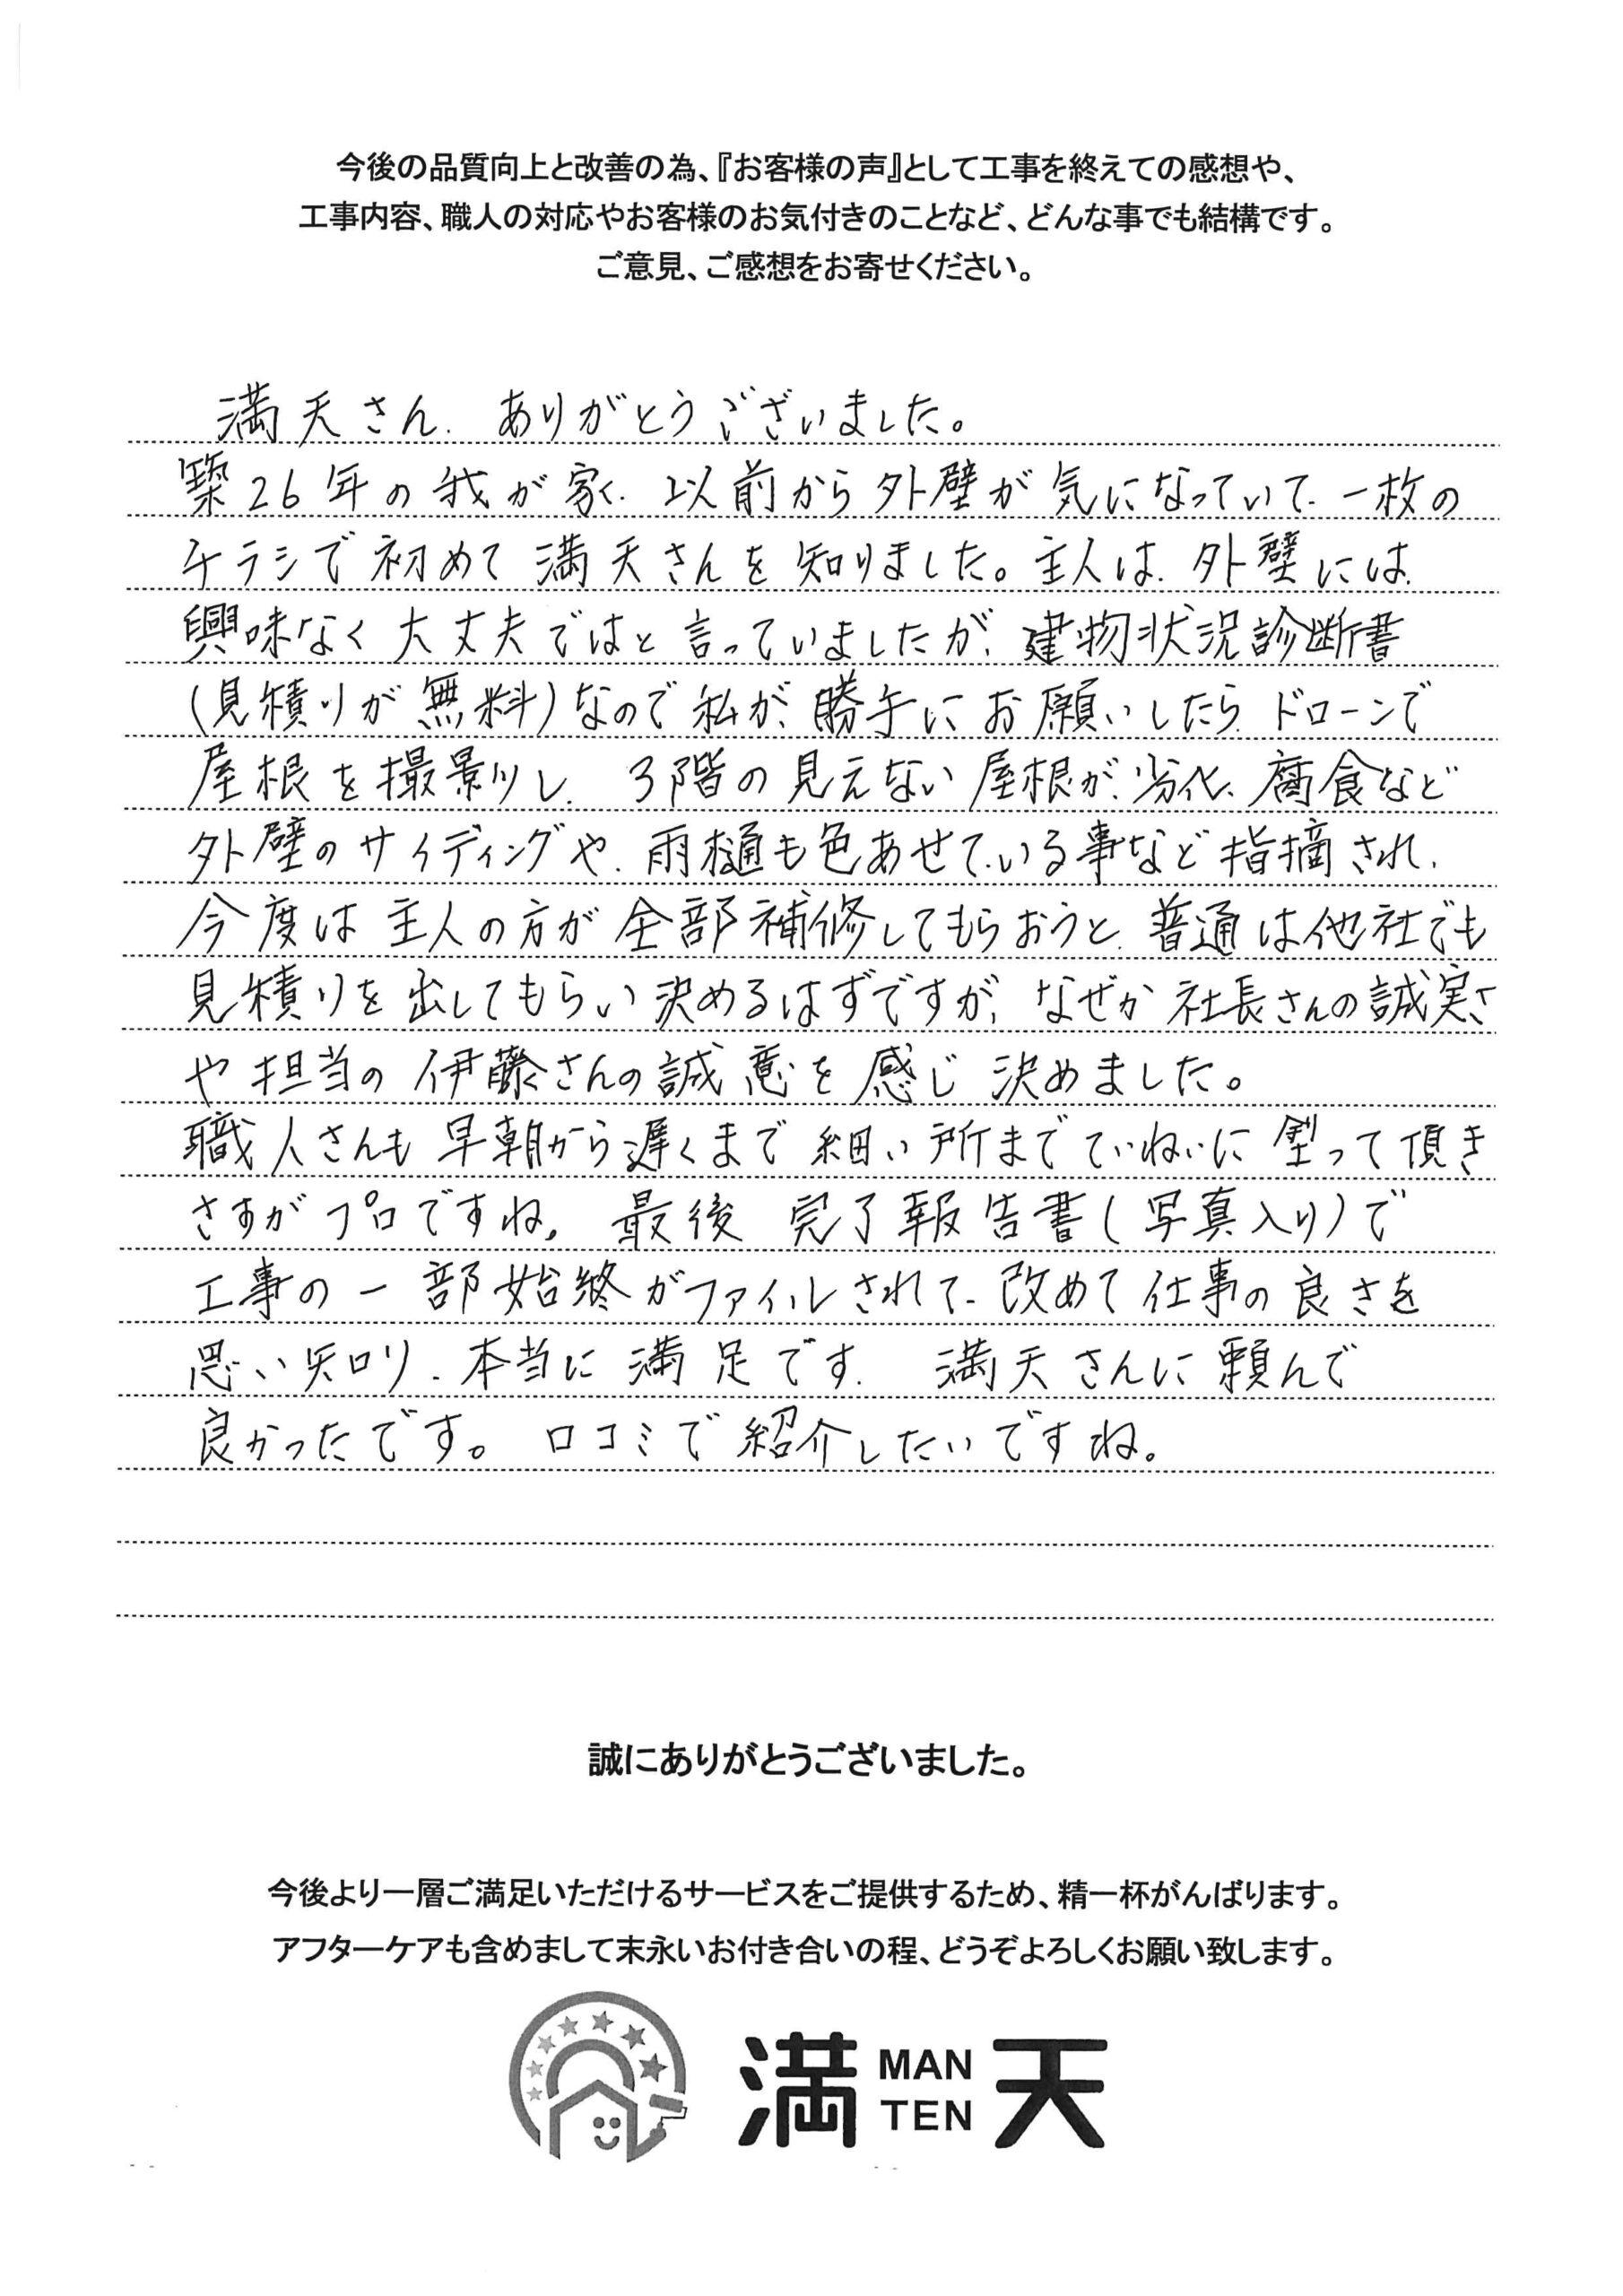 今後の品質向上と改善の為、『お客様の声』として工事を終えての感想や、
工事内容、職人の対応やお客様のお気付きのことなど、どんな事でも結構です。
ご意見、ご感想をお寄せください。
満天さん、ありがとうございました。
築26年の我が家、以前から外壁が気になっていて、一枚の
チラシで初めて満天さんを知りました。主人は、外壁には、
興味なく大丈夫ではと言っていましたが、建物状況診断書
(見積りが無料)なので私が、勝手にお願いしたら、ドローンで
屋根を撮影し、3階の見えない屋根が、劣化、腐食など
外壁のサイディングや、雨樋も色あせている事など指摘され、
今度は主人の方が全部補修してもらおうと、普通は他社でも
見積りを出してもらい決めるはずですが、なぜか社長さんの誠実さ
や担当の伊藤さんの誠意を感じ決めました。
職人さんも早朝から遅くまで細い所までていねいに塗って頂き
さすがプロですね。最後 完了報告書(写真入り)で
工事の一部始終がファイルされて、改めて仕事の良さを
思い知り、本当に満足です。満天さんに頼んで
良かったです。口コミで紹介したいですね。
誠にありがとうございました。
今後より一層ご満足いただけるサービスをご提供するため、精一杯がんばります。
アフターケアも含めまして末永いお付き合いの程、どうぞよろしくお願い致します。
満 MAN TEN 天